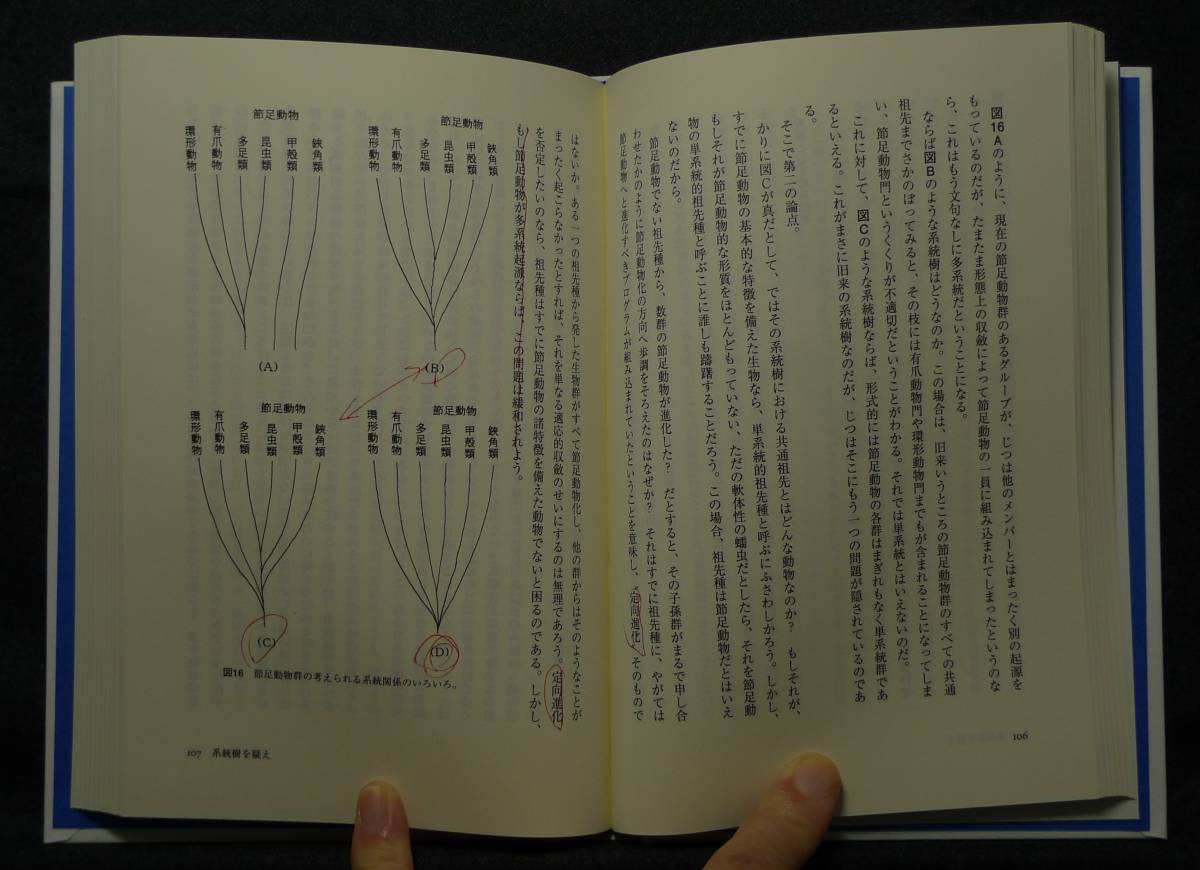 図16Aのように、現在の節足動物群のあるグループが、じつは他のメンバーとはまったく別の起源を
もっているのだが、たまたま形態上の収斂によって節足動物の一員に組み込まれてしまったというのな
ら、これはもう文句なしに多系統だということになる。
ならば図Bのような系統樹はどうなのか。この場合は、旧来いうところの節足動物群のすべての共通
祖先までさかのぼってみると、その枝には有爪動物門や環形動物門までもが含まれることになってしま
い、節足動物門というくくりが不適切だということがわかる。それでは単系統とはいえないのだ。
これに対して、図Cのような系統樹ならば、形式的には節足動物の各群はまぎれもなく単系統群であ
るといえる。これがまさに旧来の系統樹なのだが、じつはそこにもう一つの問題が隠されているのであ
る。
そこで第二の論点。
かりに図Cが真だとして、ではその系統樹における共通祖先とはどんな動物なのか? もしそれが、
すでに節足動物の基本的な特徴を備えた生物なら、単系統的祖先種と呼ぶにふさわしかろう。しかし、
もしそれが節足動物的な形質をほとんどもっていない、ただの軟体性の蠕虫だとしたら、それを節足動
物の単系統的祖先種と呼ぶことに誰しも躊躇することだろう。この場合、祖先種は節足動物だとはいえ
ないのだから。
節足動物でない祖先種から、数群の節足動物が進化した? だとすると、その子孫群がまるで申し合
わせたかのように節足動物化の方向へ歩調をそろえたのはなぜか? それはすでに祖先種に、やがては
節足動物へと進化すべきプログラムが組み込まれていたということを意味し、定向進化そのもので
106
はないか。ある一つの祖先種から発した生物群がすべて節足動物化し、他の群からはそのようなことが
まったく起こらなかったとすれば、それを単なる適応的収斂のせいにするのは無理であろう。定向進化
を否定したいのなら、祖先種はすでに節足動物の諸特徴を備えた動物でないと困るのである。しかし、
もし節足動物が多系統起源ならば、この問題は緩和されよう。
節足動物
鋏角類
甲殻類
昆虫類
多足類
有爪動物
環形動物
(B)
節足動物
鋏角類
甲殻類
昆虫類
多足類
有爪動物
環形動物
(A)
節足動物
鋏角類
甲殻類
昆虫類
多足類
有爪動物
環形動物
(D)
節足動物
鋏角類
甲殻類
昆虫類
多足類
有爪動物
環形動物
(C)
図16 節足動物群の考えられる系統関係のいろいろ。
107 系統樹を疑え